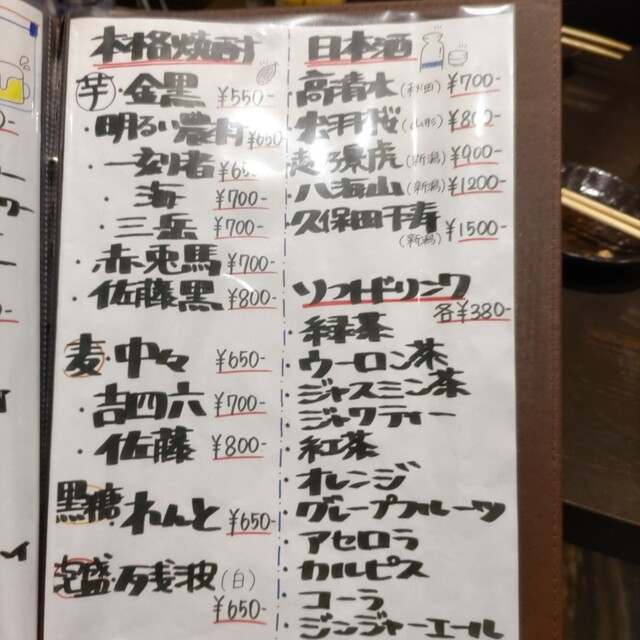 本格焼酎
芋・金黒 ¥550-
・明るい農村 ¥650
・一刻者 ¥650
・海 ¥700-
・三岳 ¥700-
・赤兎馬 ¥700-
・佐藤黒 ¥800-
麦・中々 ¥650-
・吉四六 ¥700-
・佐藤 ¥800-
黒糖・れんと ¥650-
泡盛・残波(白)
¥650-
日本酒
・高清水(秋田) ¥700-
・出羽桜(山形) ¥800-
・越乃景虎(新潟) ¥900-
・八海山(新潟) ¥1200-
・久保田千寿
(新潟) ¥1500-
ソフトドリンク
各¥380-
・緑茶
・ウーロン茶
・ジャスミン茶
・ジャワティー
・紅茶
・オレンジ
・グレープフルーツ
・アセロラ
・カルピス
・コーラ
・ジンジャーエール